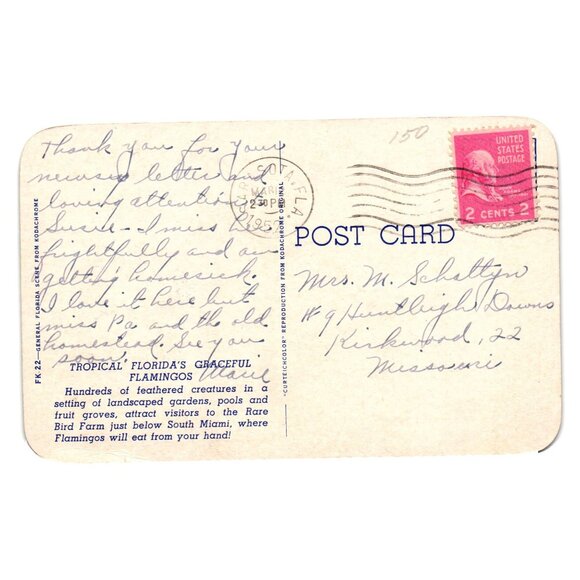 Thank you for your
newsy letter and
loving attention to
Susie - I miss her
frightfully and am
getting homesick.
I love it here but
miss Pa and the old
homestead. See you
soon. Marie
TROPICAL FLORIDA'S GRACEFUL
FLAMINGOS
Hundreds of feathered creatures in a
setting of landscaped gardens, pools and
fruit groves, attract visitors to the Rare
Bird Farm just below South Miami, where
Flamingos will eat from your hand!
FK 22—GENERAL FLORIDA SCENE FROM KODACHROME
"CURTEICHCOLOR" REPRODUCTION FROM KODACHROME ORIGINAL
SARASOTA, FLA
MAR
2 30 PM
195
POST CARD
150
UNITED
STATES
POSTAGE
2 CENTS 2
Mrs. M. Schattyn
#9 Huntleigh Downs
Kirkwood, 22
Missouri